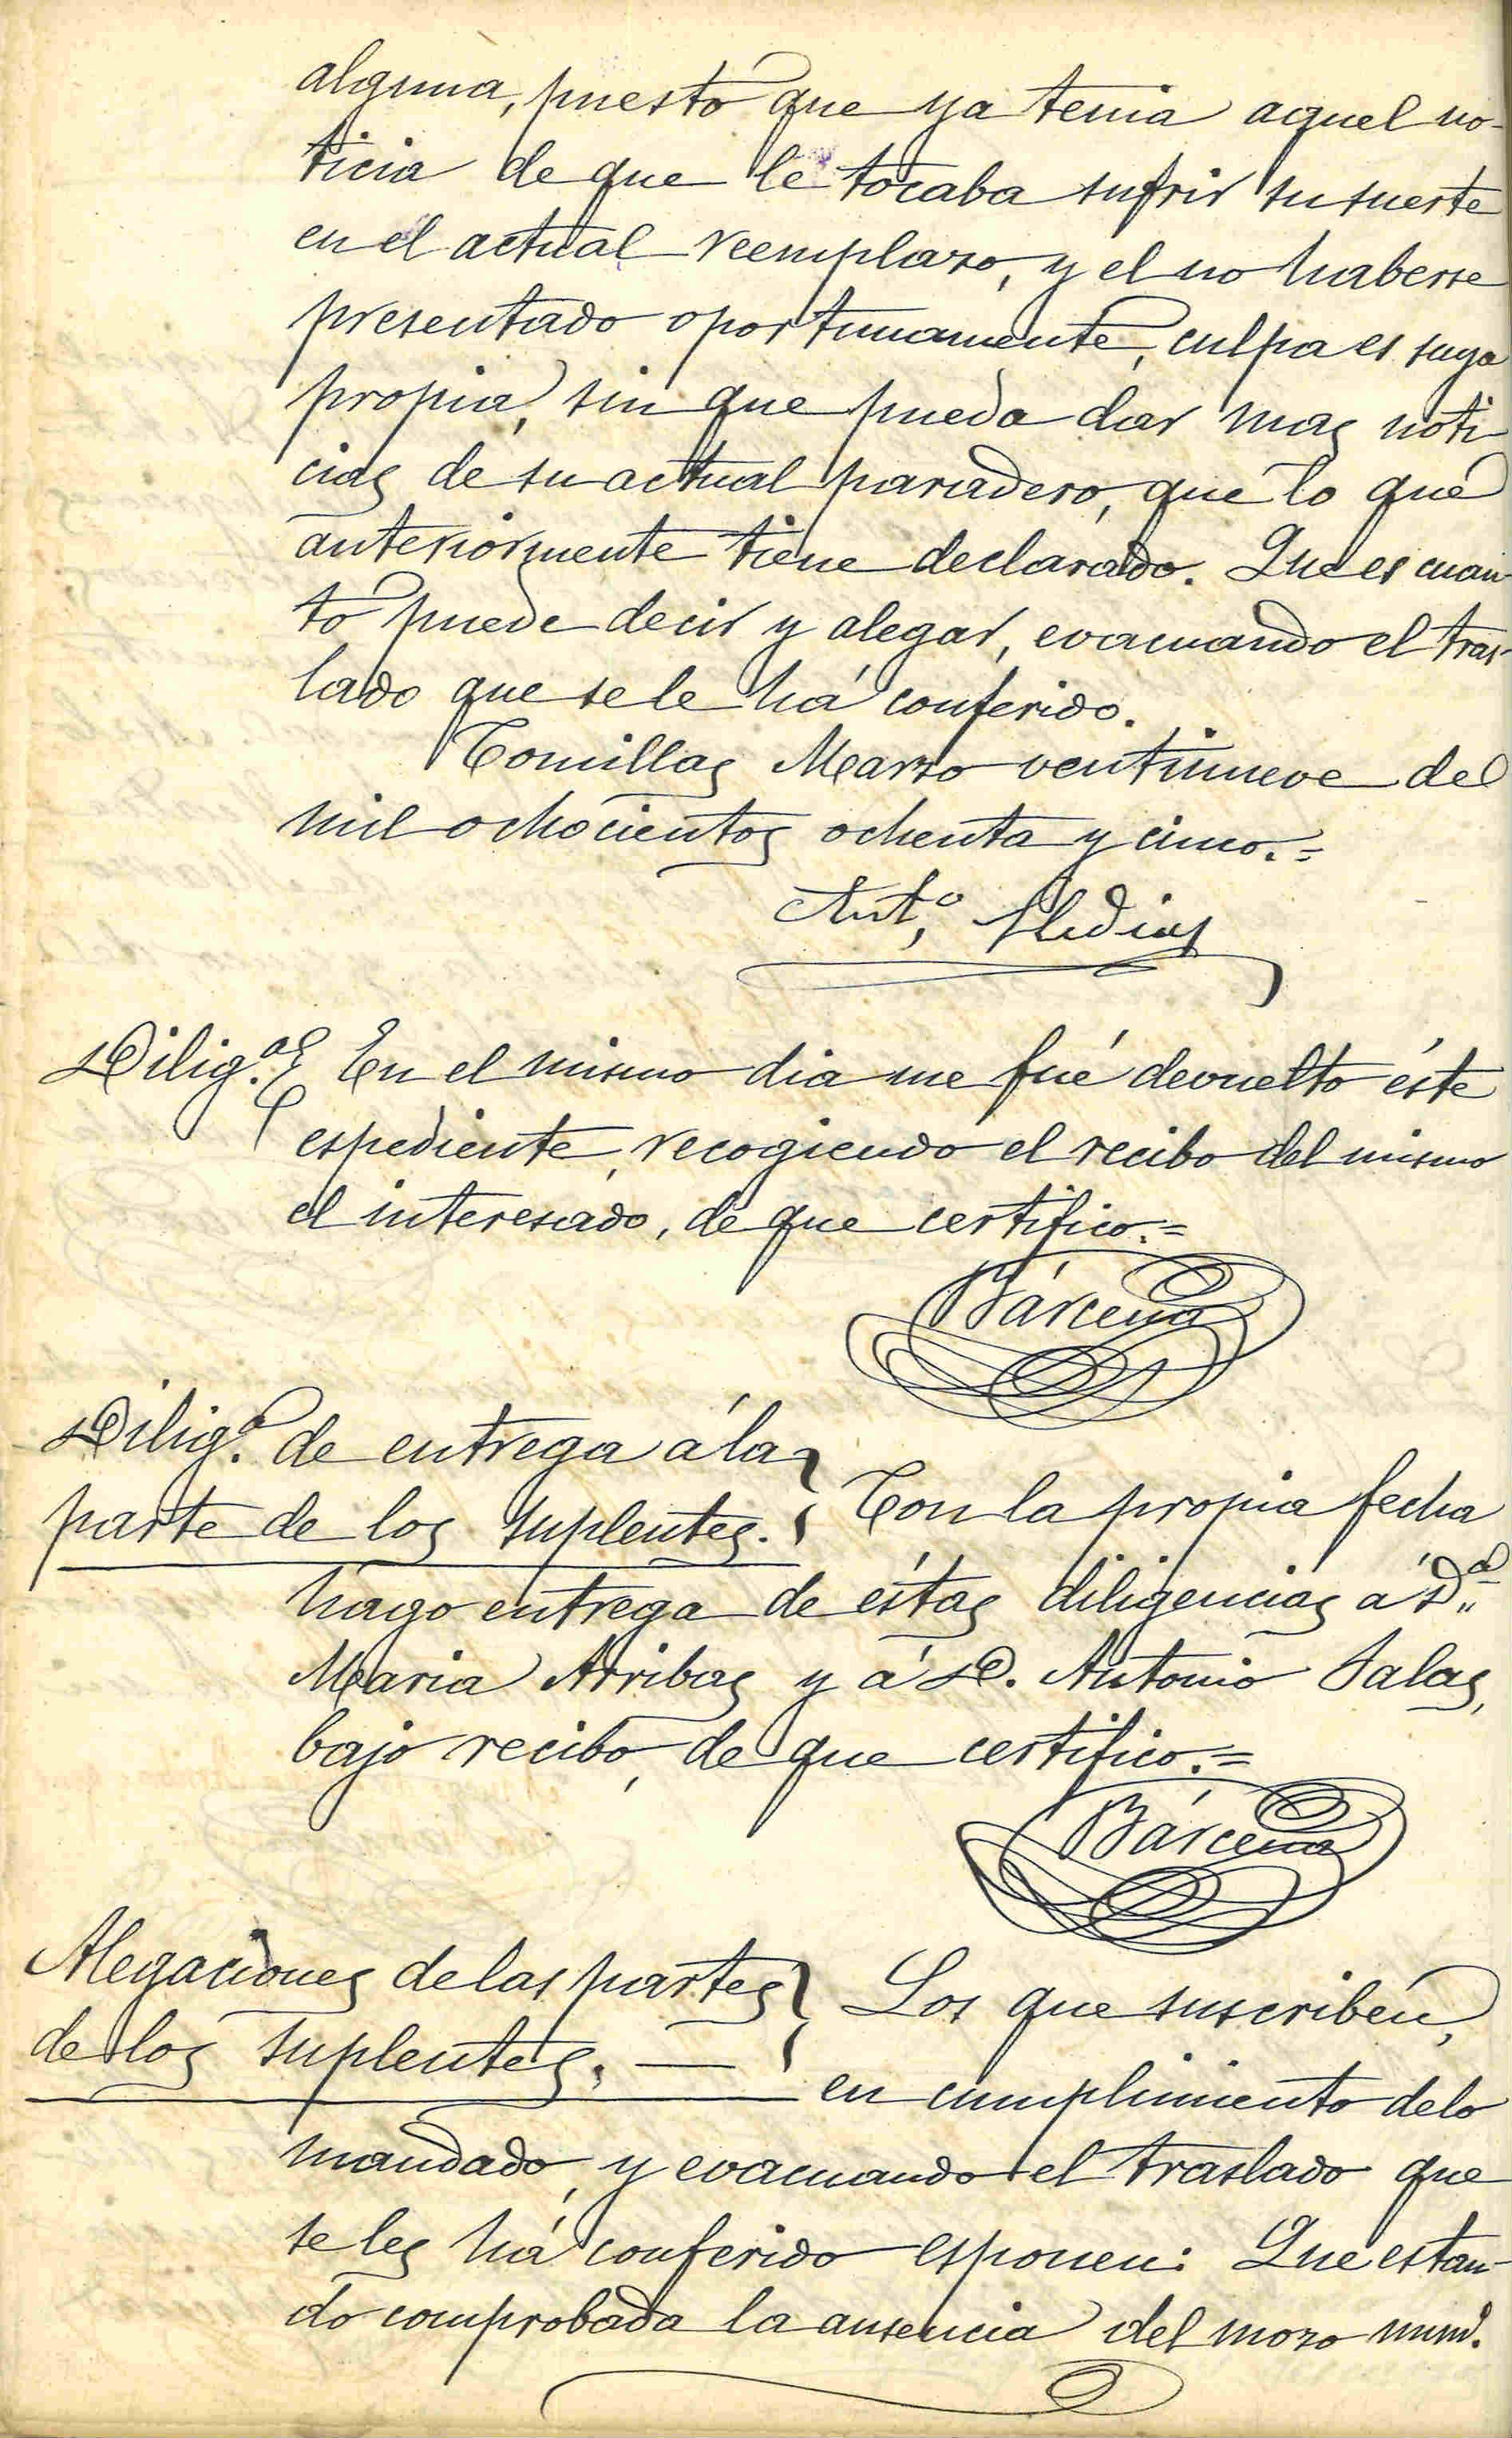 alguna, puesto que ya tenia aquel no-
ticia de que le tocaba sufrir su suerte
en el actual reemplazo, y el no haberse
presentado oportunamente, culpa es suya
propia, sin que pueda dar mas noti-
cias de su actual paradero, que lo que
anteriormente tiene declarado. Que es cuan-
to puede decir y alegar, evacuando el tras-
lado que se le há conferido.
Comillas Marzo ventinueve del
mil ochocientos ochenta y cinco.=
Ant.º
Dilig.ª En el mismo dia me fué devuelto éste
espediente, recogiendo el recibo del mismo
el interesado, de que certifico.=
Bárcena
Dilig.ª de entrega á la
parte de los suplentes. } Con la propia fecha
hago entrega de éstas diligencias á D.ª
Maria Arribas y á D. Antonio Salas,
bajo recibo, de que certifico.=
Bárcena
Alegaciones de las partes } Los que suscriben,
de los suplentes. —
en cumplimiento de lo
mandado, y evacuando el traslado que
se les há conferido esponen: Que estan-
do comprobada la ausencia del mozo num.º